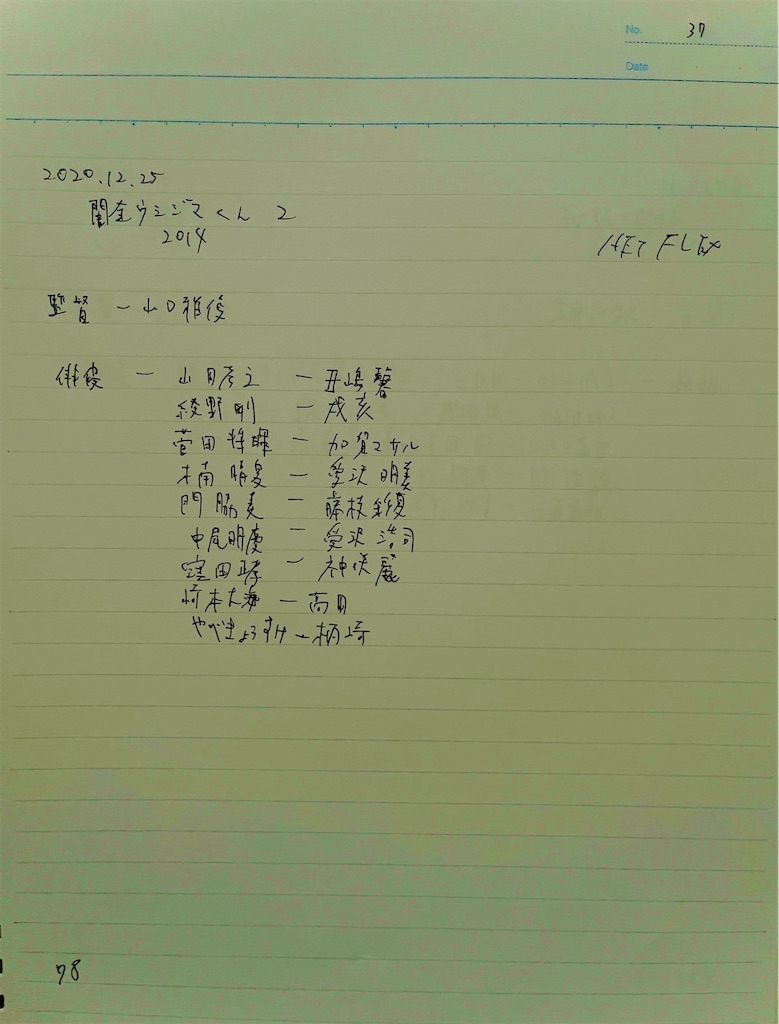 No. 37
Date
2020.12.25
闇金ウシジマくん 2
2014
NETFLIX
監督 ー 山口雅俊
俳優 ー 山田孝之 ー 丑嶋馨
綾野剛 ー 戌亥
菅田将暉 ー 加賀マサル
木南晴夏 ー 愛沢明美
門脇麦 ー 藤枝彩優
中尾明慶 ー 愛沢浩司
窪田正孝 ー 神咲麗
崎本大海 ー 高田
やべきょうすけ ー 柄崎
78